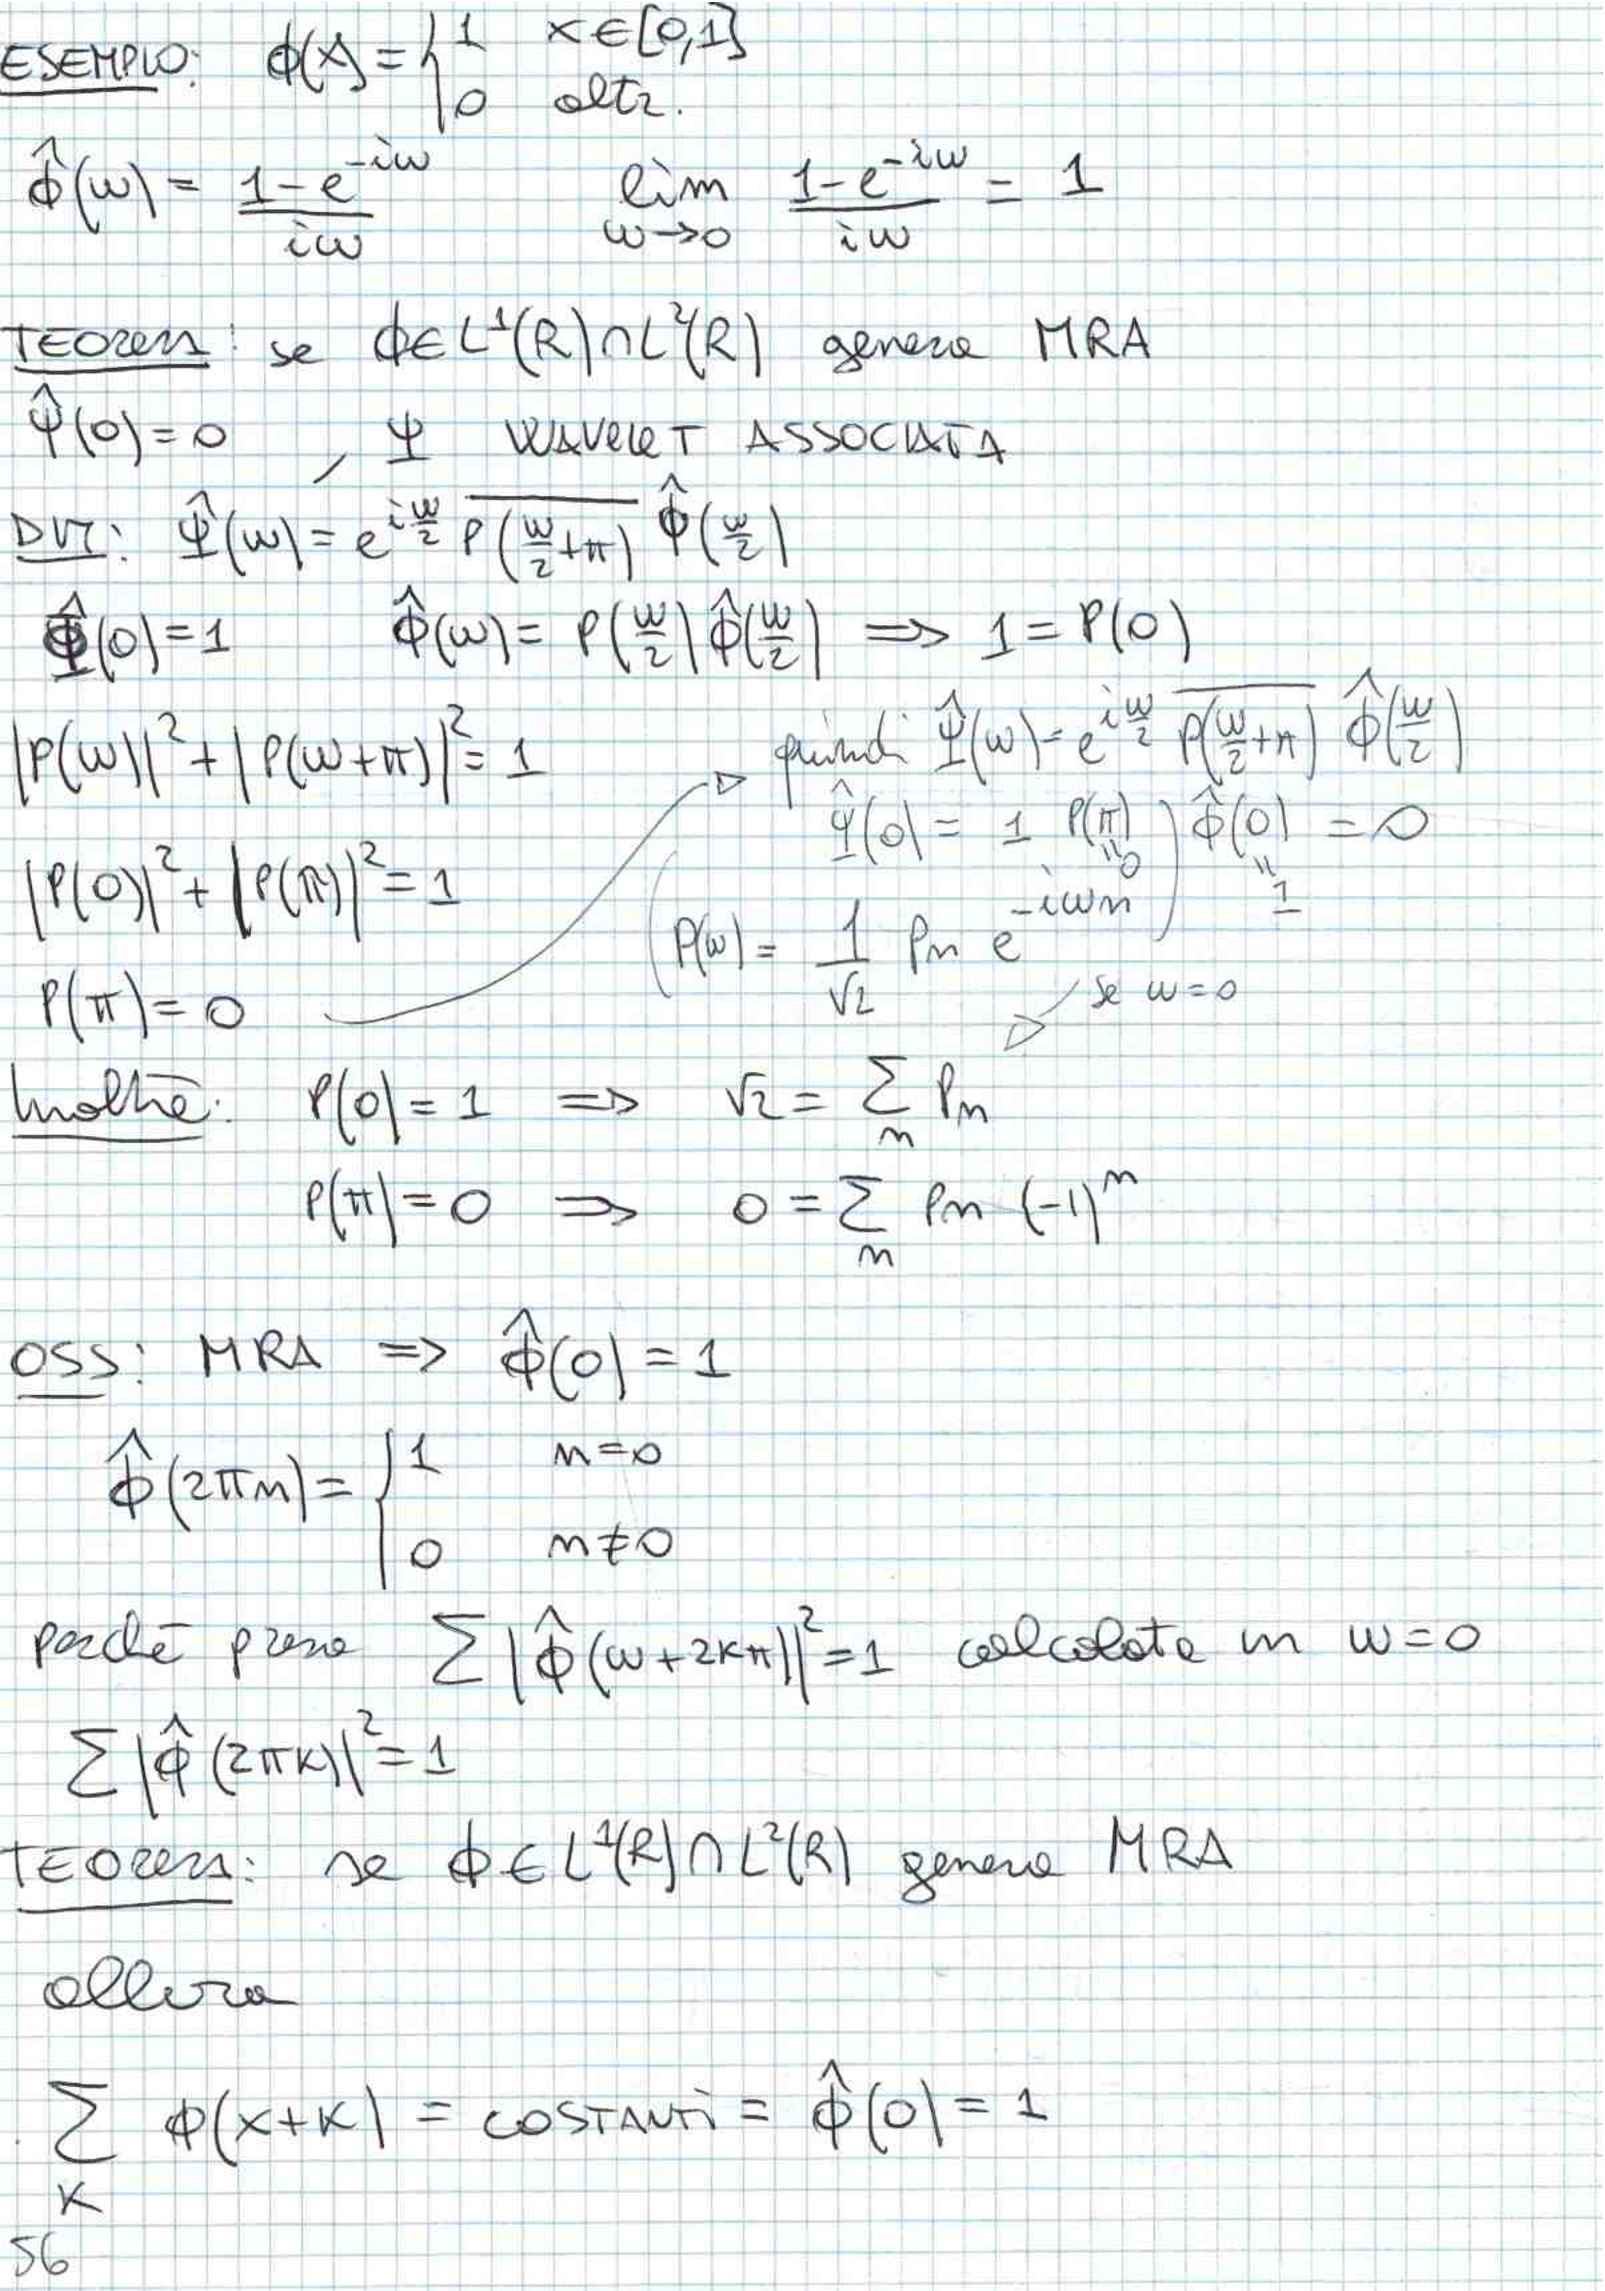 ESEMPIO: ϕ(x) = { 1 x∈[0,1]
0 altr.
ϕ̂(ω) = (1-e^{-iω})/(iω) lim_{ω→0} (1-e^{-iω})/(iω) = 1
TEOREMA: se ϕ∈L¹(R)∩L²(R) genera MRA
ψ̂(0) = 0 , ψ WAVELET ASSOCIATA
DIM: ψ̂(ω) = e^{iω/2} \overline{P(ω/2+π)} ϕ̂(ω/2)
ϕ̂(0) = 1 ϕ̂(ω) = P(ω/2) ϕ̂(ω/2) ⇒ 1 = P(0)
|P(ω)|² + |P(ω+π)|² = 1
|P(0)|² + |P(π)|² = 1
P(π) = 0
quindi ψ̂(ω) = e^{iω/2} \overline{P(ω/2+π)} ϕ̂(ω/2)
ψ̂(0) = 1 P(π) ϕ̂(0) = 0
"0 "1
(P(ω) = 1/√2 Pn e^{-iωn})
se ω=0
Inoltre: P(0) = 1 ⇒ √2 = Σ_n Pn
P(π) = 0 ⇒ 0 = Σ_n Pn (-1)^n
OSS: MRA ⇒ ϕ̂(0) = 1
ϕ̂(2πn) = { 1 n=0
0 n≠0
perchè presa Σ|ϕ̂(ω+2kπ)|² = 1 calcolata in ω=0
Σ|ϕ̂(2πk)|² = 1
TEOREMA: se ϕ∈L¹(R)∩L²(R) genera MRA
allora
Σ_k ϕ(x+k) = COSTANTi = ϕ̂(0) = 1
56